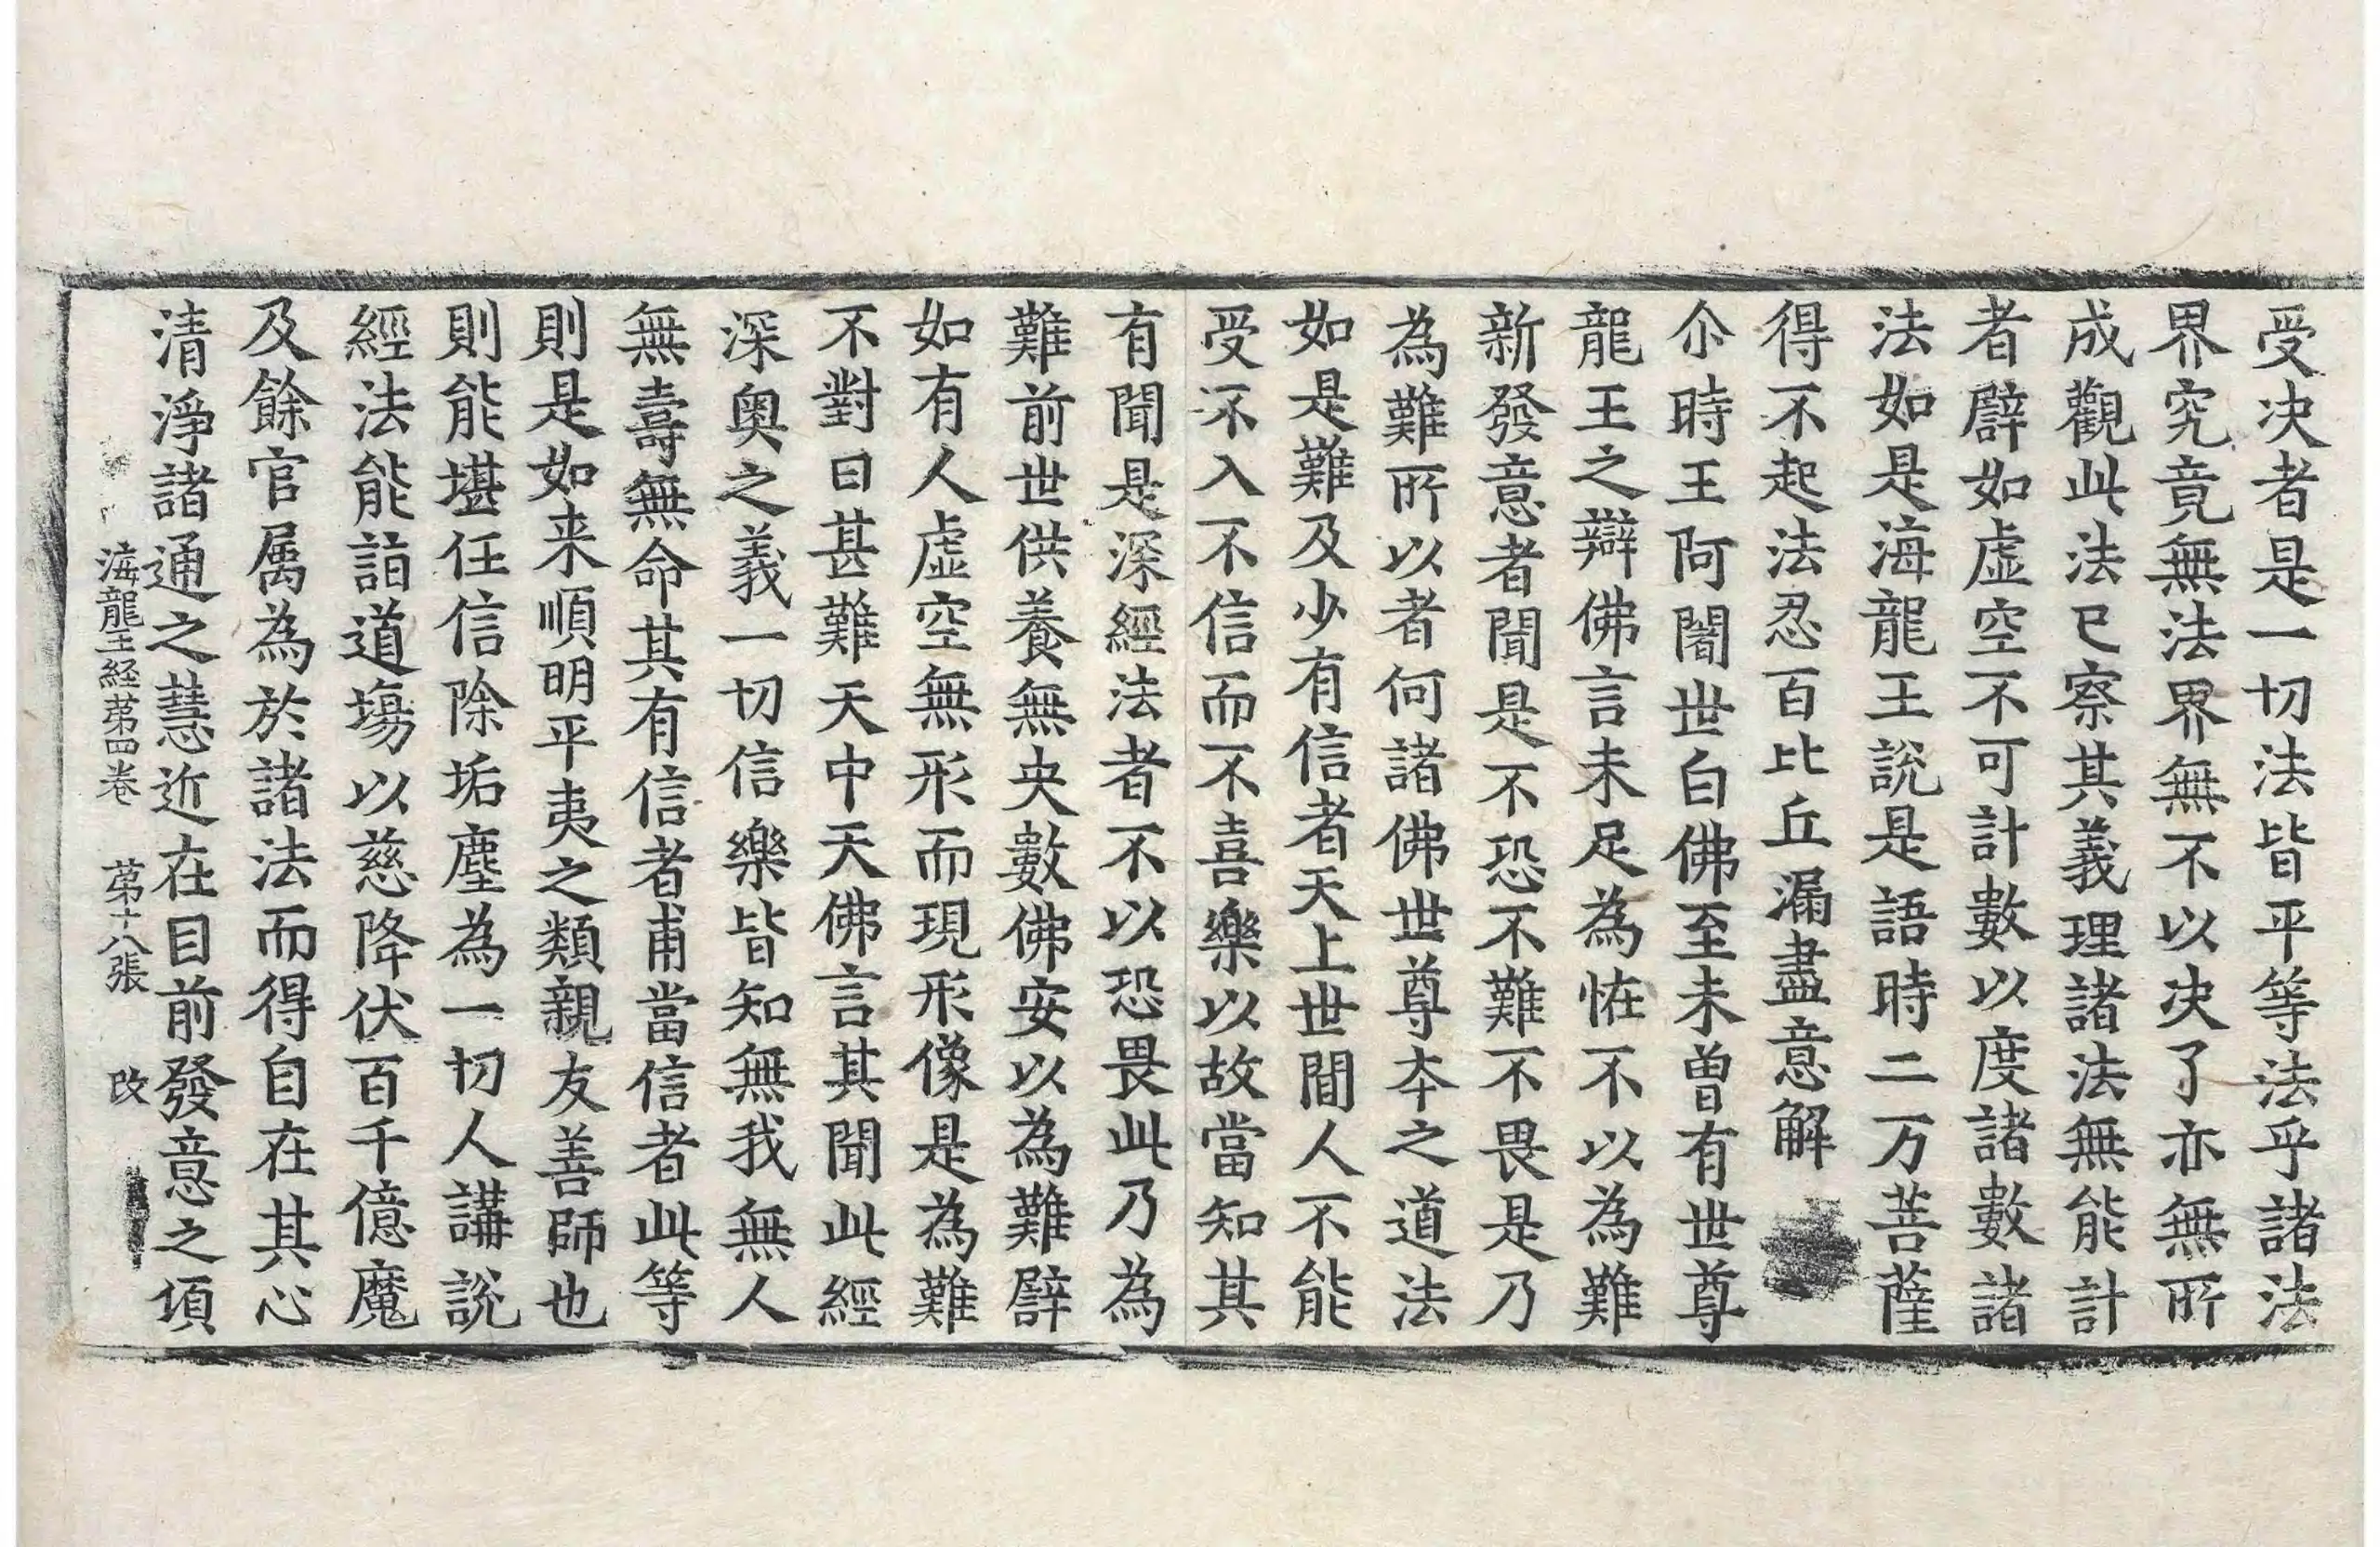 受决者是一切法皆平等法乎諸法
界究竟無法界無不以决了亦無所
成觀此法已察其義理諸法無能計
者譬如虛空不可計數以度諸數諸
法如是海龍王說是語時二万菩薩
得不起法忍百比丘漏盡意解
尒時王阿闍世白佛至未曾有世尊
龍王之辯佛言未足為恠不以為難
新發意者聞是不恐不難不畏是乃
為難所以者何諸佛世尊夲之道法
如是難及少有信者天上世間人不能
受不入不信而不喜樂以故當知其
有聞是深經法者不以恐畏此乃為
難前世供養無央數佛安以為難譬
如有人虛空無形而現形像是為難
不對曰甚難天中天佛言其聞此經
深奧之義一切信樂皆知無我無人
無壽無命其有信者甫當信者此等
則是如来順明平夷之類親友善師也
則能堪任信除垢塵為一切人講說
經法能詣道場以慈降伏百千億魔
及餘官属為於諸法而得自在其心
清淨諸通之慧近在目前發意之頃
海龍王経苐四卷 苐十八張 改